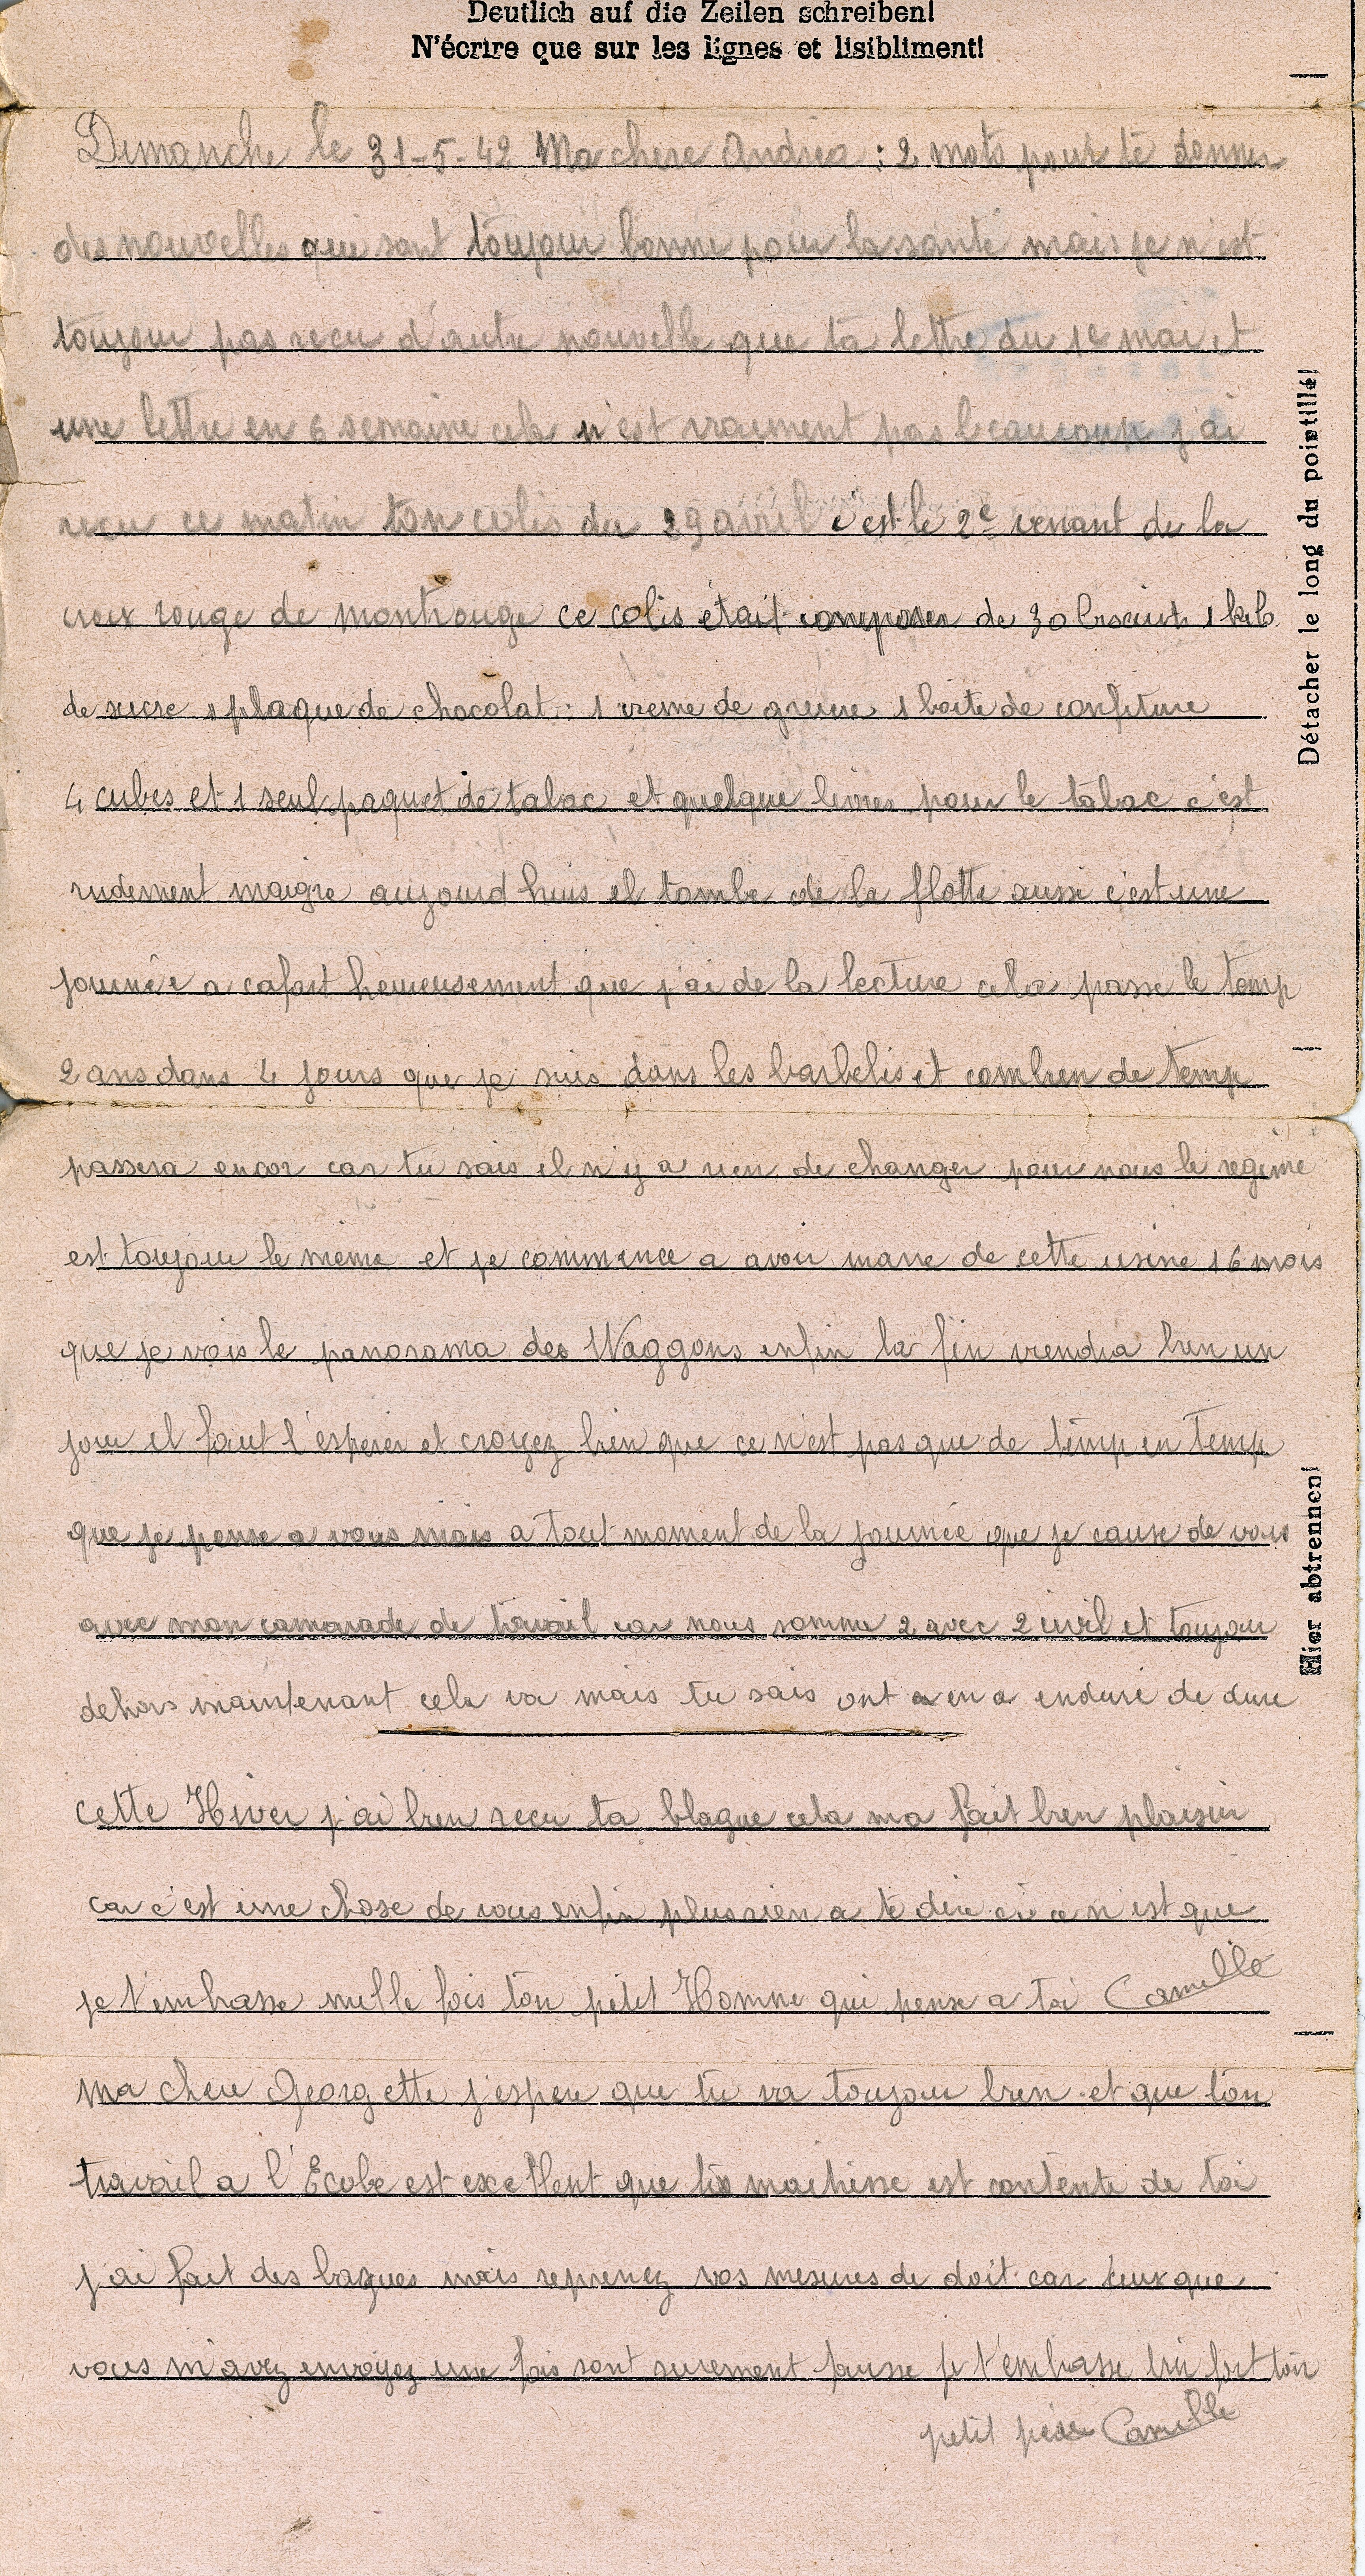 Deutlich auf die Zeilen schreiben!
N'écrire que sur les lignes et lisibliment!
Dimanche le 31-5-42 Ma chere Andréa : 2 mots pour te donner
des nouvelles qui sont toujour bonne pour la santé mais je n'est
toujour pas recu d'autre nouvelle que ta lettre du 1e mai et
une lettre en 6 semaine cela n'est vraiment pas beaucoup j'ai
recu ce matin ton colis du 29 avril c'est le 2e venant de la
croix rouge de montrouge ce colis était composer de 30 biscuits 1 kilo
de sucre 1 plaque de chocolat : 1 creme de gruere 1 boite de confiture
4 cubes et 1 seul paquet de tabac et quelque livres pour le tabac c'est
rudement maigre aujourd huis il tombe de la flotte aussi c'est une
journée a cafart heureusement que j'ai de la lecture cela passe le temp
2 ans dans 4 jours que je suis dans les barbelis et combien de temp
passera encor car tu sais il n'y a rien de changer pour nous le régime
est toujour le même et je commence a avoir marre de cette usine 16 mois
que je vois le panorama des Waggons enfin la fin viendra bien un
jour il faut l'esperer et croyez bien que ce n'est pas que de temp en temp
que je pense a vous mais a tout moment de la journée que je cause de vous
avec mon camarade de travail car nous somme 2 avec 2 civil et toujour
dehors maintenant cela va mais tu sais ont a en a enduré de dure
cette Hiver j'ai bien recu ta blague cela ma fait bien plaisir
car c'est une chose de vous enfin plus rien a te dire si ce n'est que
je t'embrasse mille fois ton petit Homme qui pense a toi Camille
Ma chere Georgette j'espere que tu va toujour bien et que ton
travail a l'École est excellent que ta maitresse est contente de toi
j'ai fait des bagues mais reprenez vos mesures de doit car ceux que
vous m'avez envoyez une fois sont surement fausse je t'embrasse bien fort ton
petit père Camille
Détacher le long du pointillé!
Hier abtrennen!